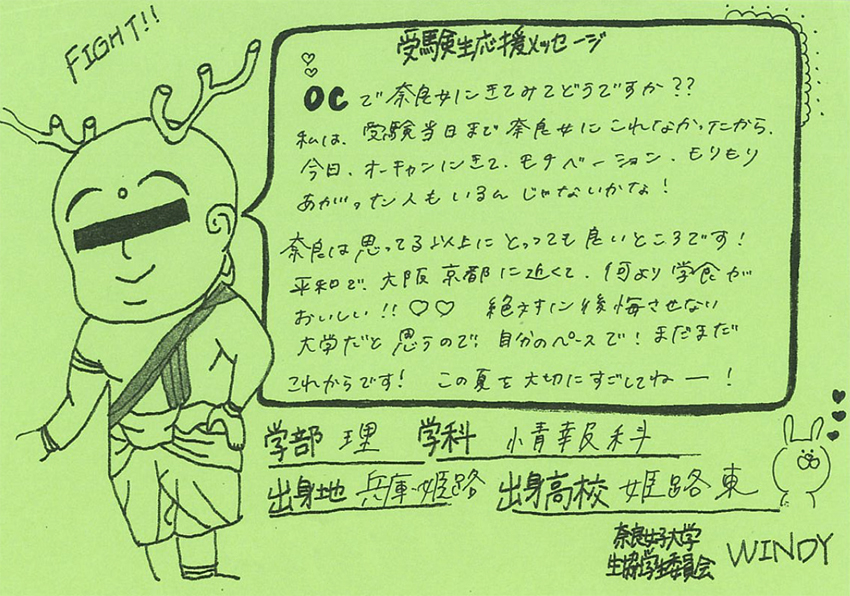 FIGHT!!
受験生応援メッセージ
OCで奈良女にきてみてどうですか??
私は、受験当日まで奈良女にこれなかったから、
今日、オーキャンにきて、モチベーション、もりもり
あがった人もいるんじゃないかな!
奈良は思ってる以上にとっても良いところです!
平和で、大阪京都に近くて、何より学食が
おいしい!!♡♡ 絶対に後悔させない
大学だと思うので、自分のペースで!まだまだ
これからです! この夏を大切にすごしてねー!
学部 理 学科 情報科
出身地 兵庫・姫路 出身高校 姫路東
奈良女子大学
生協学生委員会 WINDY